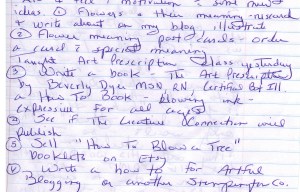 ideas ① Flowers & their meaning - research
& write about on my blog, illustrate
② Flower meaning post cards - order
a card & special meaning
Taught Art Prescription class yesterday
③ Write a book - The Art Prescription
by Beverly Dyer MSN RN, Certified
a How To Book - blowing ink -
expressive for all ages
④ See if The Creative Connection will
publish
⑤ Sell "How To Blow a Tree"
Booklets on Etsy
Write a how to for Artful
Blogging or another Stampington Co.